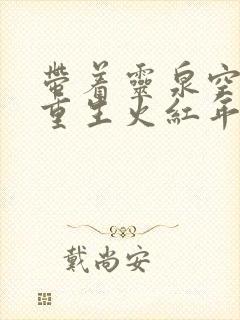 带着靈泉空
重生火紅年
戴尚安